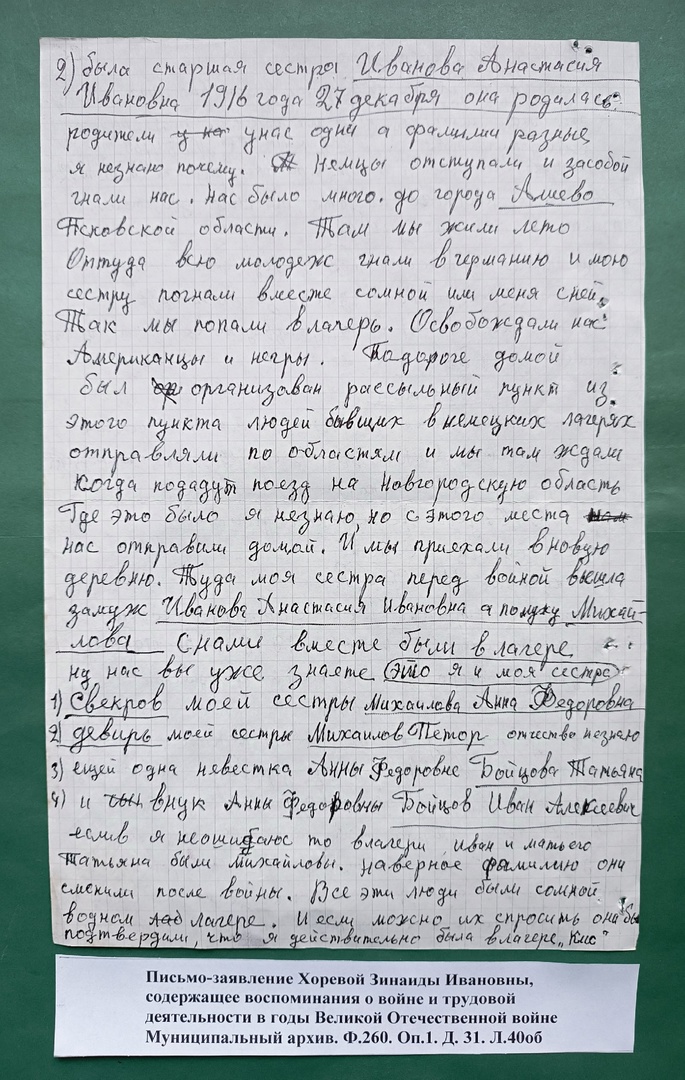 2) была старшая сестра Иванова Анастасия
Ивановна 1916 года 27 декабря она родилась
родители у на унас одни а фамилии разные
я незнаю почему. Немцы отступали и засобой
гнали нас. Нас было много. до города Ашево
Псковской области. Там мы жили лето
Оттуда всю молодеж гнали в германию и мою
сестру погнали вместе сомной или меня сней.
Так мы попали влагерь. Освобождали нас
Американцы и негры. Подороге домой
был организован рассыльный пункт из
этого пункта людей бывших внемецких лагерях
отправляли по областям и мы там ждали
когда подадут поезд на Новгородскую область
Где это было я незнаю, но сэтого места
нас отправили домой. И мы приехали вновую
деревню. Туда моя сестра перед войной вышла
замуж Иванова Анастасия Ивановна а помужу Михай-
лова Снами вместе были влагере
ну нас вы уже знаете (это я и моя сестра)
1) Свекров моей сестры Михаилова Анна Федоровна
2) девирь моей сестры Михаилов Петор отчество незнаю
3) ещей одна невестка Анны Федоровне Бойцова Татьяна
4) и внук Анны Федоровны Бойцов Иван Алексеевич
еслив я неошибаюс то влагери иван и матьего
Татьяна были Михайловы. наверное фамилию они
сменили после войны. Все эти люди были сомной
водном лаб лагере. И если можно их спросить они бы
подтвердили, что я действительно была влагере „Кис"
Письмо-заявление Хоревой Зинаиды Ивановны,
содержащее воспоминания о войне и трудовой
деятельности в годы Великой Отечественной войне
Муниципальный архив. Ф.260. Оп.1. Д. 31. Л.40об